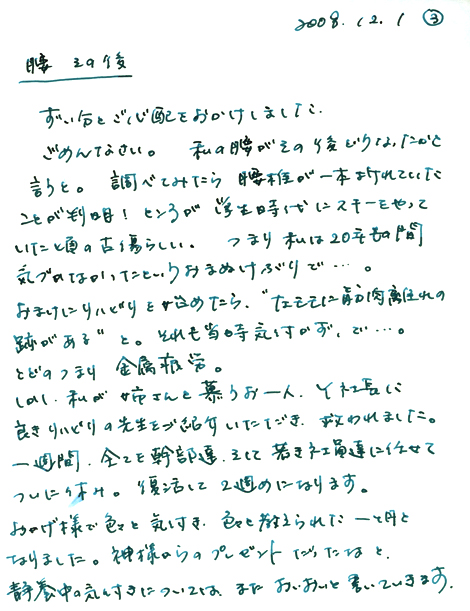 2008.12.1 ③
腰 その後
ずい分とご心配をおかけしました.
ごめんなさい。 私の腰がその後どうなったかと
言うと。 調べてみたら 腰椎が一本折れていた
ことが判明！ ところが 学生時代にスキーをやって
いた頃の古傷らしい。 つまり私は20年もの間
気づかなかったというおまぬけぶりで…。
おまけにリハビリを始めたら、“左モモに筋肉離れの
跡がある”と。それも当時気付かず、で…。
とどのつまり 金属疲労。
しかし、私が姉さんと慕うお一人、Y社長に
良きリハビリの先生をご紹介いただき、救われました。
一週間、全てを幹部達、そして若き社員達に任せて
ついに休み。 復活して2週めになります。
おかげ様で色々と気付き、色々と教えられた一ヶ月と
なりました。神様からのプレゼントだったなと、
静養中の気付きについては、また おいおいと書いていきます.